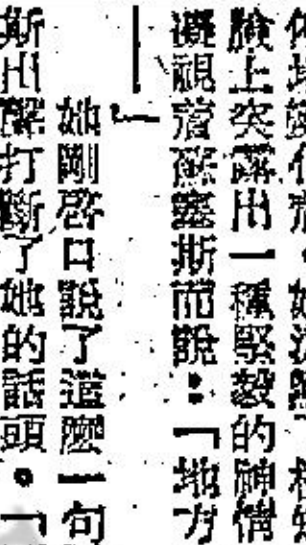 臉上突露出一種堅毅的神情
凝視着蘇塞斯而說：「地方
——」
她剛啓口說了這麼一句
斯出聲打斷了她的話頭。「